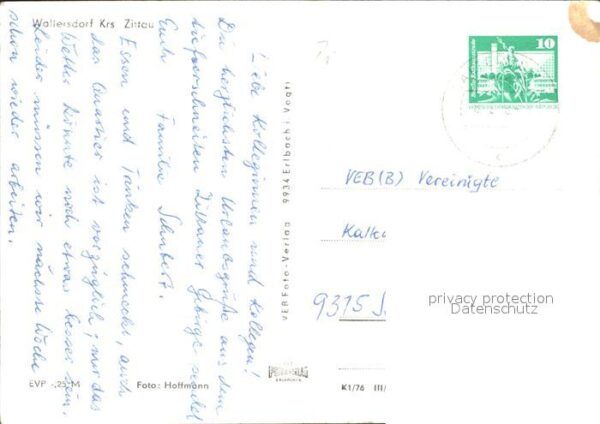 Waltersdorf Krs Zittau
Liebe Kolleginnen und Kollegen!
Die herzlichsten Urlaubsgrüße aus dem
tiefverschneiten Zittauer Gebirge sendet
Euch Familie Schubert.
Essen und Trinken schmeckt, auch
das Quartier ist vorzüglich; nur das
Wetter könnte noch etwas besser sein.
Leider müssen wir nächste Woche
schon wieder arbeiten.
EVP -,25 M
Foto: Hoffmann
VEB Foto-Verlag 9934 Erlbach i. Vogtl
K1/76 III/
10
VEB(B) Vereinigte
Kalk
9375
privacy protection
Datenschutz